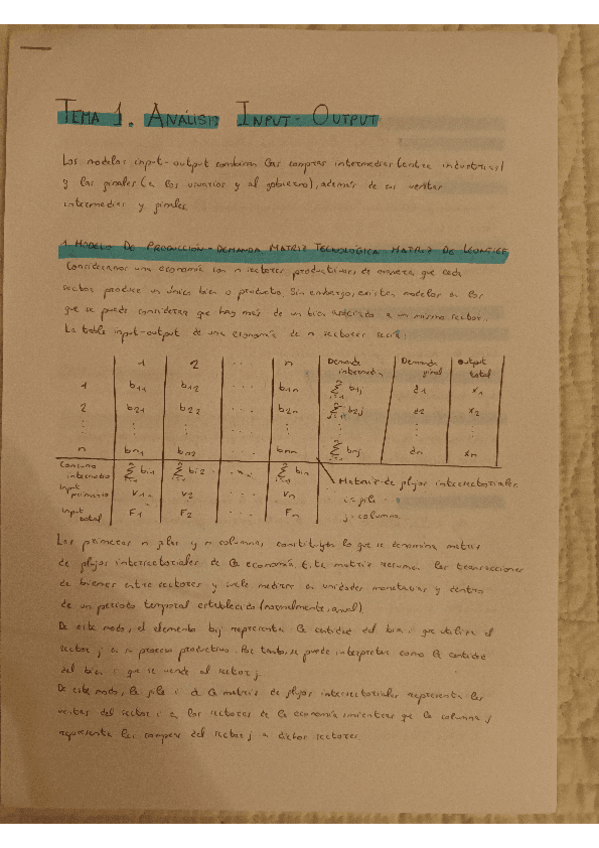 TEMA 1. ANÁLISIS INPUT-OUTPUT
Los modelos input-output combinan las compras intermedias (entre industrias)
y las finales (a los usuarios y al gobierno), además de sus ventas
intermedias y finales.
1. MODELO DE PRODUCCIÓN-DEMANDA MATRIZ TECNOLÓGICA MATRIZ DE LEONTIEF
Consideramos una economía con n sectores productivos de manera que cada
sector produce un único bien o producto. Sin embargo, existen modelos en los
que se puede considerar que hay más de un bien a un mismo sector.
La tabla input-output de una economía de n sectores será:
1 2 ... n Demanda intermedia Demanda final Output total
1 b11 b12 ... b1n Σ b1j d1 x1
2 b21 b22 ... b2n Σ b2j d2 x2
n bn1 bn2 ... bnn Σ bnj dn xn
Consumo intermedio Σ bi1 Σ bi2 ... Σ bin
Matriz de flujos intersectoriales
Input primario V1 V2 Vn
i = fila
Input total F1 F2 Fn
j = columna
Las primeras n filas y n columnas, constituyen lo que se denomina matriz
de flujos intersectoriales de la economía. Esta matriz resume las transacciones
de bienes entre sectores y suele medirse en unidades monetarias y dentro
de un periodo temporal establecido (normalmente, anual)
De este modo, el elemento bij representa la cantidad del bien i que utiliza el
sector j en su proceso productivo. Por tanto, se puede interpretar como la cantidad
del bien i que se vende al sector j.
De este modo, la fila i de la matriz de flujos intersectoriales representa las
ventas del sector i a los sectores de la economía mientras que la columna j
representa las compras del sector j a dichos sectores.